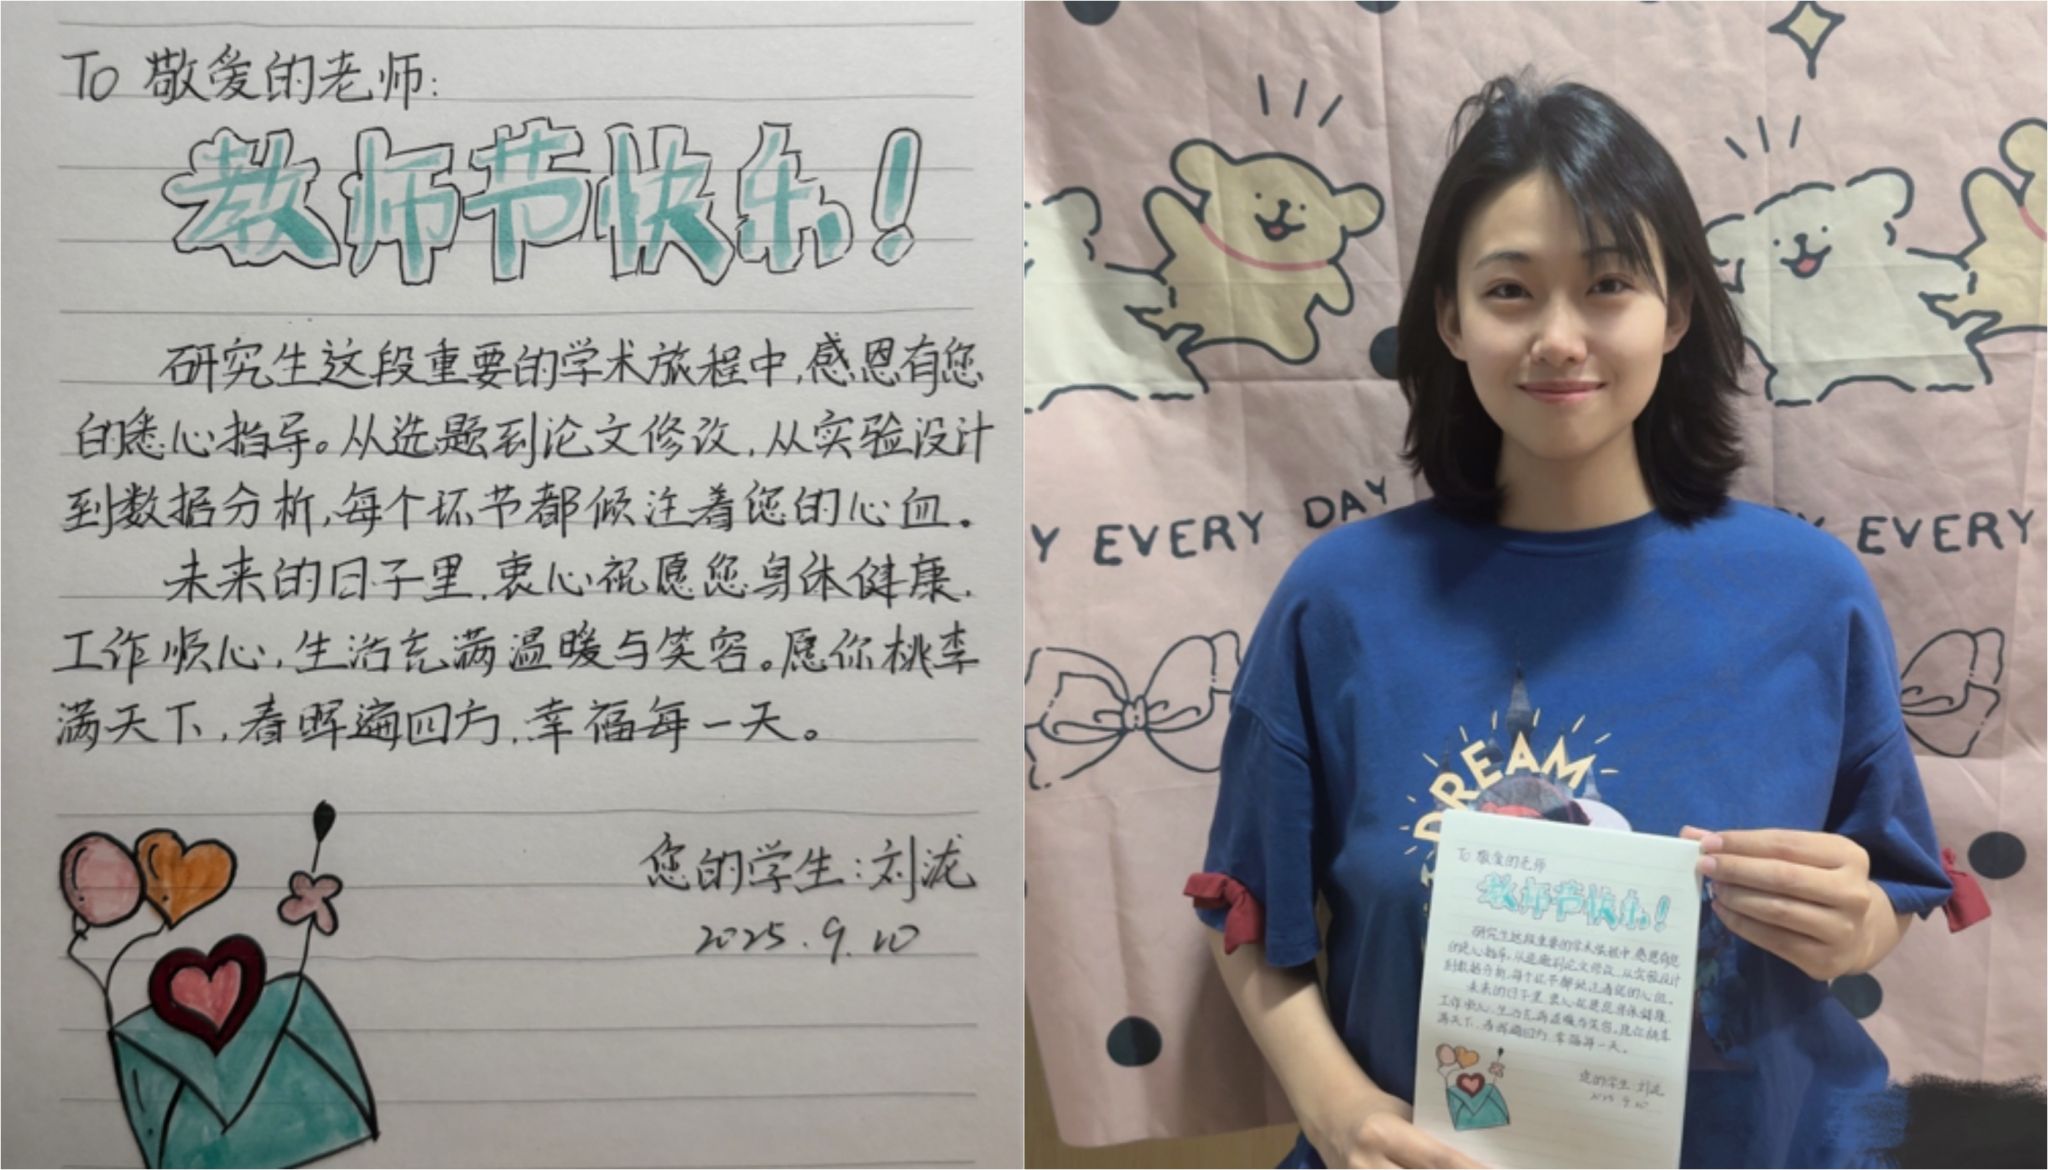 To 敬爱的老师:
教师节快乐!
研究生这段重要的学术旅程中,感恩有您
的悉心指导。从选题到论文修改,从实验设计
到数据分析,每个环节都倾注着您的心血。
未来的日子里,衷心祝愿您身体健康,
工作顺心,生活充满温暖与笑容。愿你桃李
满天下,春晖遍四方,幸福每一天。
您的学生:刘泷
2025.9.10
Y EVERY DAY
Y EVERY
DREAM
To 敬爱的老师
教师节快乐!
研究生这段重要的学术旅程中,感恩有您
的悉心指导。从选题到论文修改,从实验设计
到数据分析,每个环节都倾注着您的心血。
未来的日子里,衷心祝愿您身体健康,
工作顺心,生活充满温暖与笑容。愿你桃李
满天下,春晖遍四方,幸福每一天。
您的学生:刘泷
2025.9.10